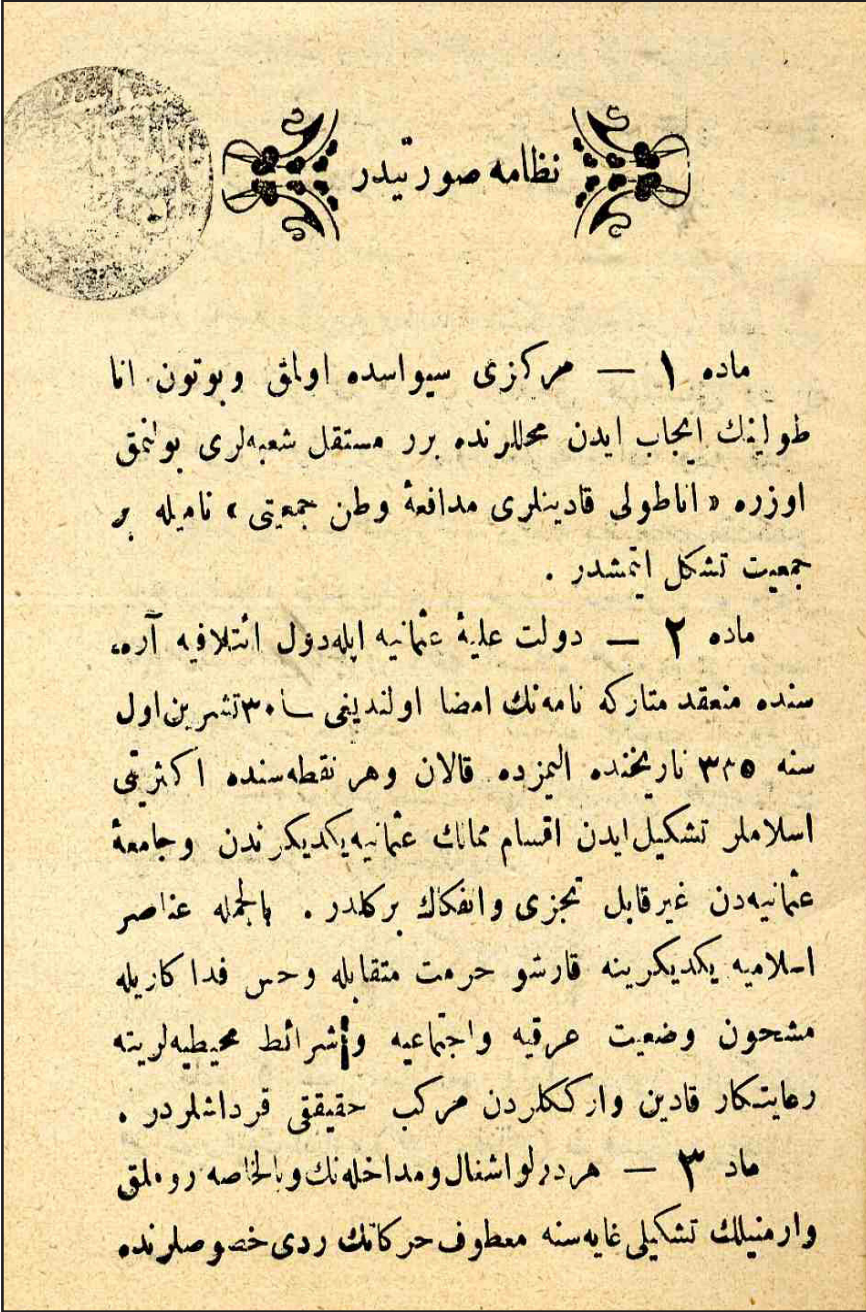 نظامه صورتيدر
ماده ١ — مركزى سيواسده اولمق وبوتون انا
طولينك ايجاب ايدن محللرنده برر مستقل شعبه‌لرى بولنمق
اوزره « اناطولى قادينلرى مدافعهٔ وطن جمعيتى » ناميله بر
جمعيت تشكل ايتمشدر .
ماده ٢ — دولت عليهٔ عثمانيه ايله‌دول ائتلافيه آره‌
سنده منعقد متاركه نامه‌نك امضا اولنديغى ٣٠تشرين‌اول
سنه ٣٣٥ تاريخنده اليمزده قالان وهر نقطه‌سنده اكثريتى
اسلاملر تشكيل‌ايدن اقسام ممالك عثمانيه‌يكديكرندن وجامعهٔ
عثمانيه‌دن غيرقابل تجزى وانفكاك بركلدر . بالجمله عناصر
اسلاميه يكديكرينه قارشو حرمت متقابله وحس فداكاريله
مشحون وضعيت عرقيه واجتماعيه وشرائط محيطيه‌لرينه
رعايتكار قادين واركككلردن مركب حقيقى قرداشلردر .
ماد ٣ — هردرلواشغال‌ومداخله‌نك‌وبالخاصه روملق
وارمنيلك تشكيلى غايه‌سنه معطوف حركاتك ردى خصوصلرنده